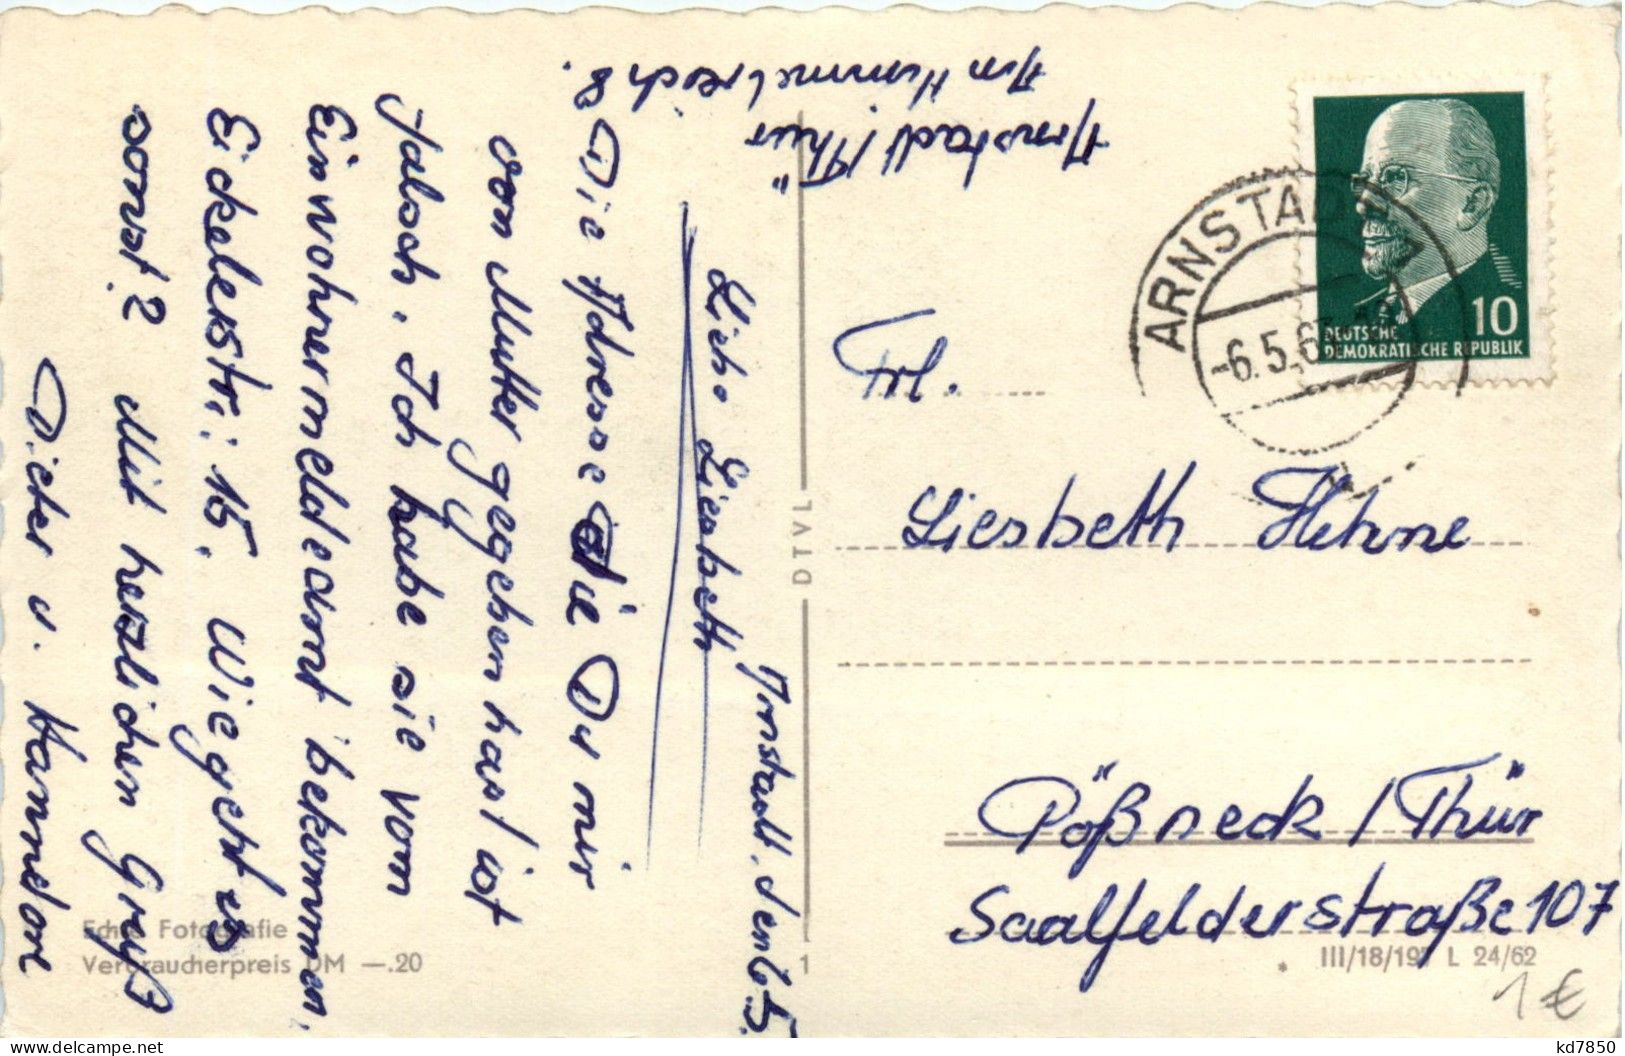 Arnstadt/Thür
Am Himmelreich 8.
Arnstadt, den 6.5.
Liebe Liesbeth
Die Adresse die Du mir
von Mutter gegeben hast ist
falsch. Ich habe sie vom
Einwohnermeldeamt bekommen,
Eickelerstr.: 15. Wie geht es
sonst? Mit herzlichen Gruß
Dieter u. Hannelore
Echte Fotografie
Verbraucherpreis DM —.20
DTVL
1
ARNSTADT 1
-6.5.63
10
DEUTSCHE
DEMOKRATISCHE REPUBLIK
Frl.
Liesbeth Hehne
Pößneck / Thür
Saalfelderstraße 107
III/18/197 L 24/62
1 €
kd7850